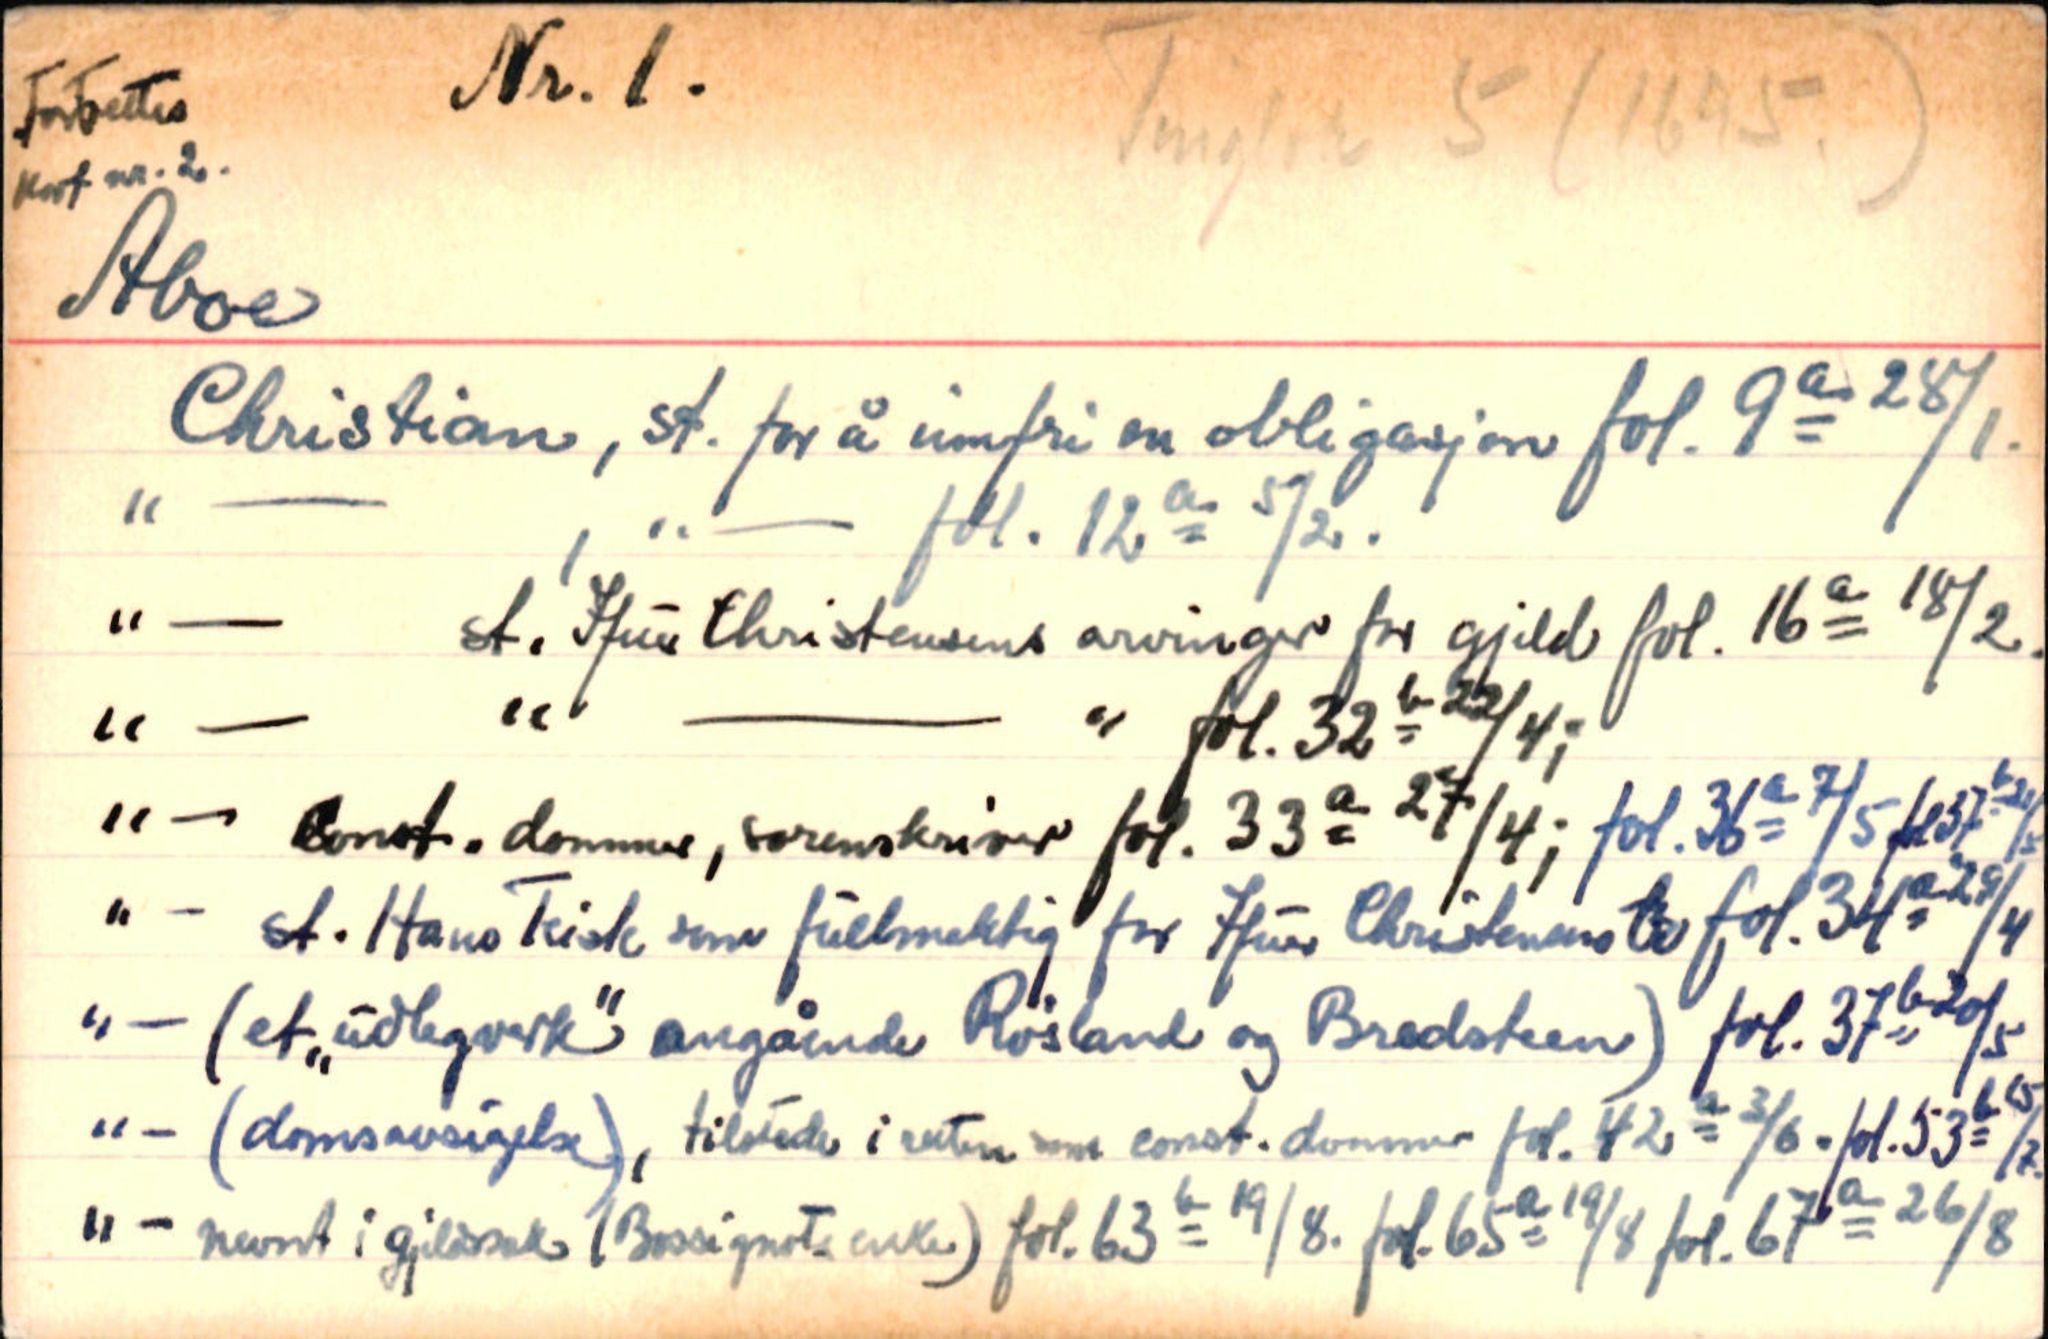 Nr. 1.
Tingbok 5 (1695.)
Fortsettes
kort nr. 2.
Aboe
Christian, st. for å innfri en obligasjon fol. 9a 28/1.
" — , " — fol. 12a 5/2.
" — st. Ifuer Christensens arvinger for gjeld fol. 16a 18/2.
" — " — " fol. 32b 22/4;
" — Const. dommer, sorenskriver fol. 33a 27/4; fol. 36a 7/5 fol 37b 20/5
" — st. Hans Teiste som fullmektig for Ifuer Christensens fol. 34a 29/4
" — (et „udlegverk" angående Røsland og Bredsteen) fol. 37b 20/5
" — (domsavsigelse), tilstede i retten som const. dommer fol. 42a 3/6. fol. 53b 15/7.
" — nevnt i gjeldssak (Bossignots enke) fol. 63b 19/8. fol. 65a 19/8 fol. 67a 26/8